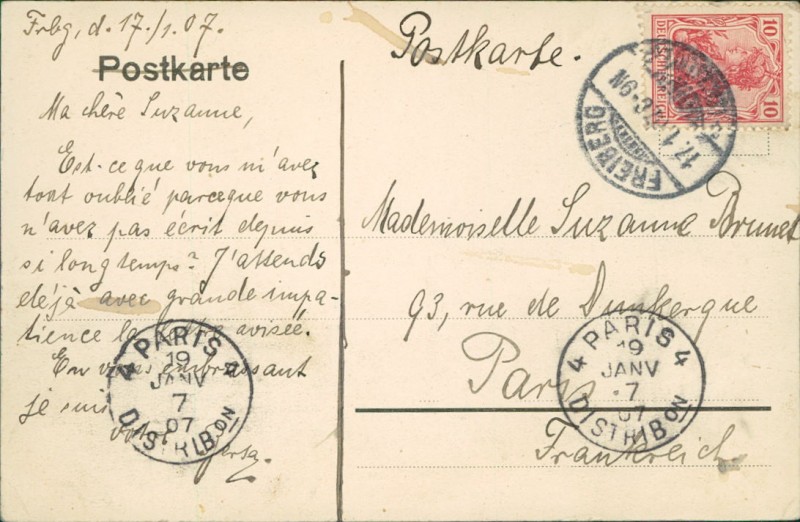 Frbg, d. 17./1.07.
Postkarte
Ma chère Suzanne,
Est-ce que vous m'avez
tout oublié parceque vous
n'avez pas écrit depuis
si longtemps? J'attends
déjà avec grande impa-
tience la carte avisée.
En vous embrassant
je suis
votre
Postkarte.
Mademoiselle Suzanne Brunet
93, rue de Dunkerque
Paris.
Frankreich
10 10
DEUTSCHES REICH
FREIBERG
17.1
6-9N
4 PARIS 4
19
JANV
7
07
DISTRIBON
4 PARIS 4
19
JANV
7
07
DISTRIBON